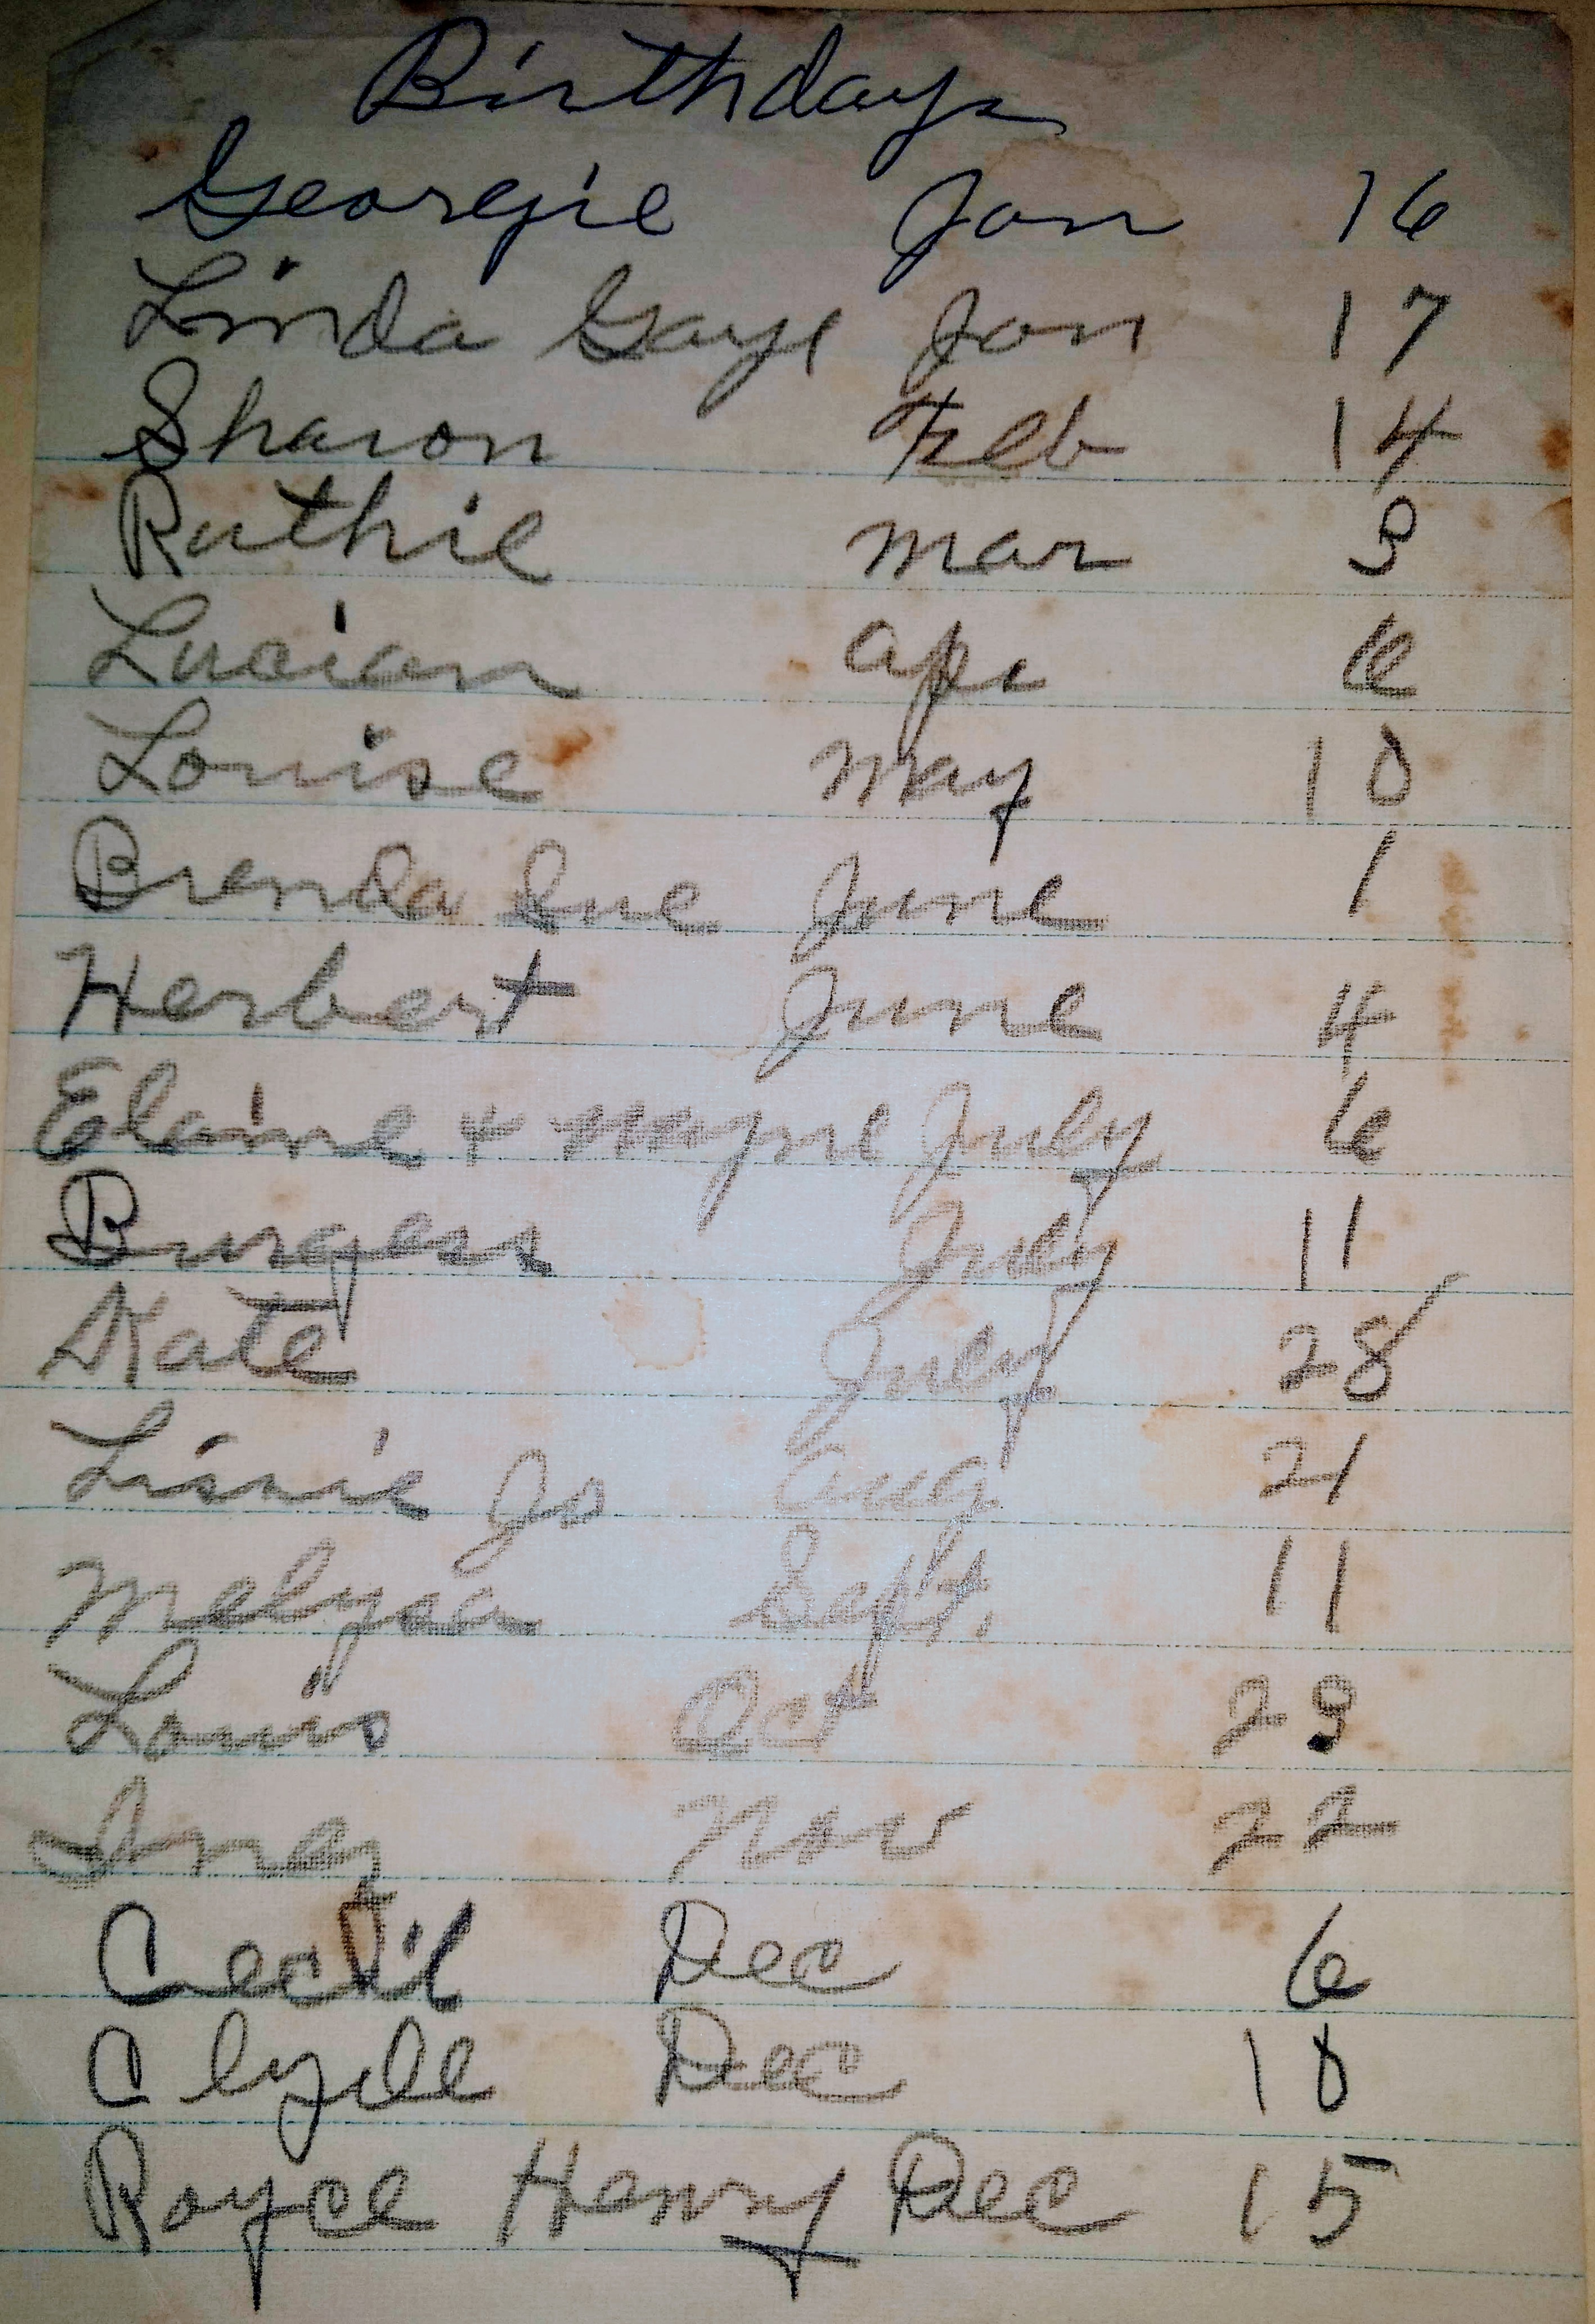 Birthdays
Georgie Jan 16
Linda Gaye Jan 17
Sharon Feb 14
Ruthie Mar 3
Lucian Apr 6
Louise May 10
Brenda Sue June 1
Herbert June 4
Elaine + Wayne July 6
Burgess July 11
Kate July 28
Linnie Jo Aug 21
Melyssa Sept. 11
Louis Oct 29
Nov 22
Cecil Dec 6
Clyde Dec 10
Royce Henry Dec 15